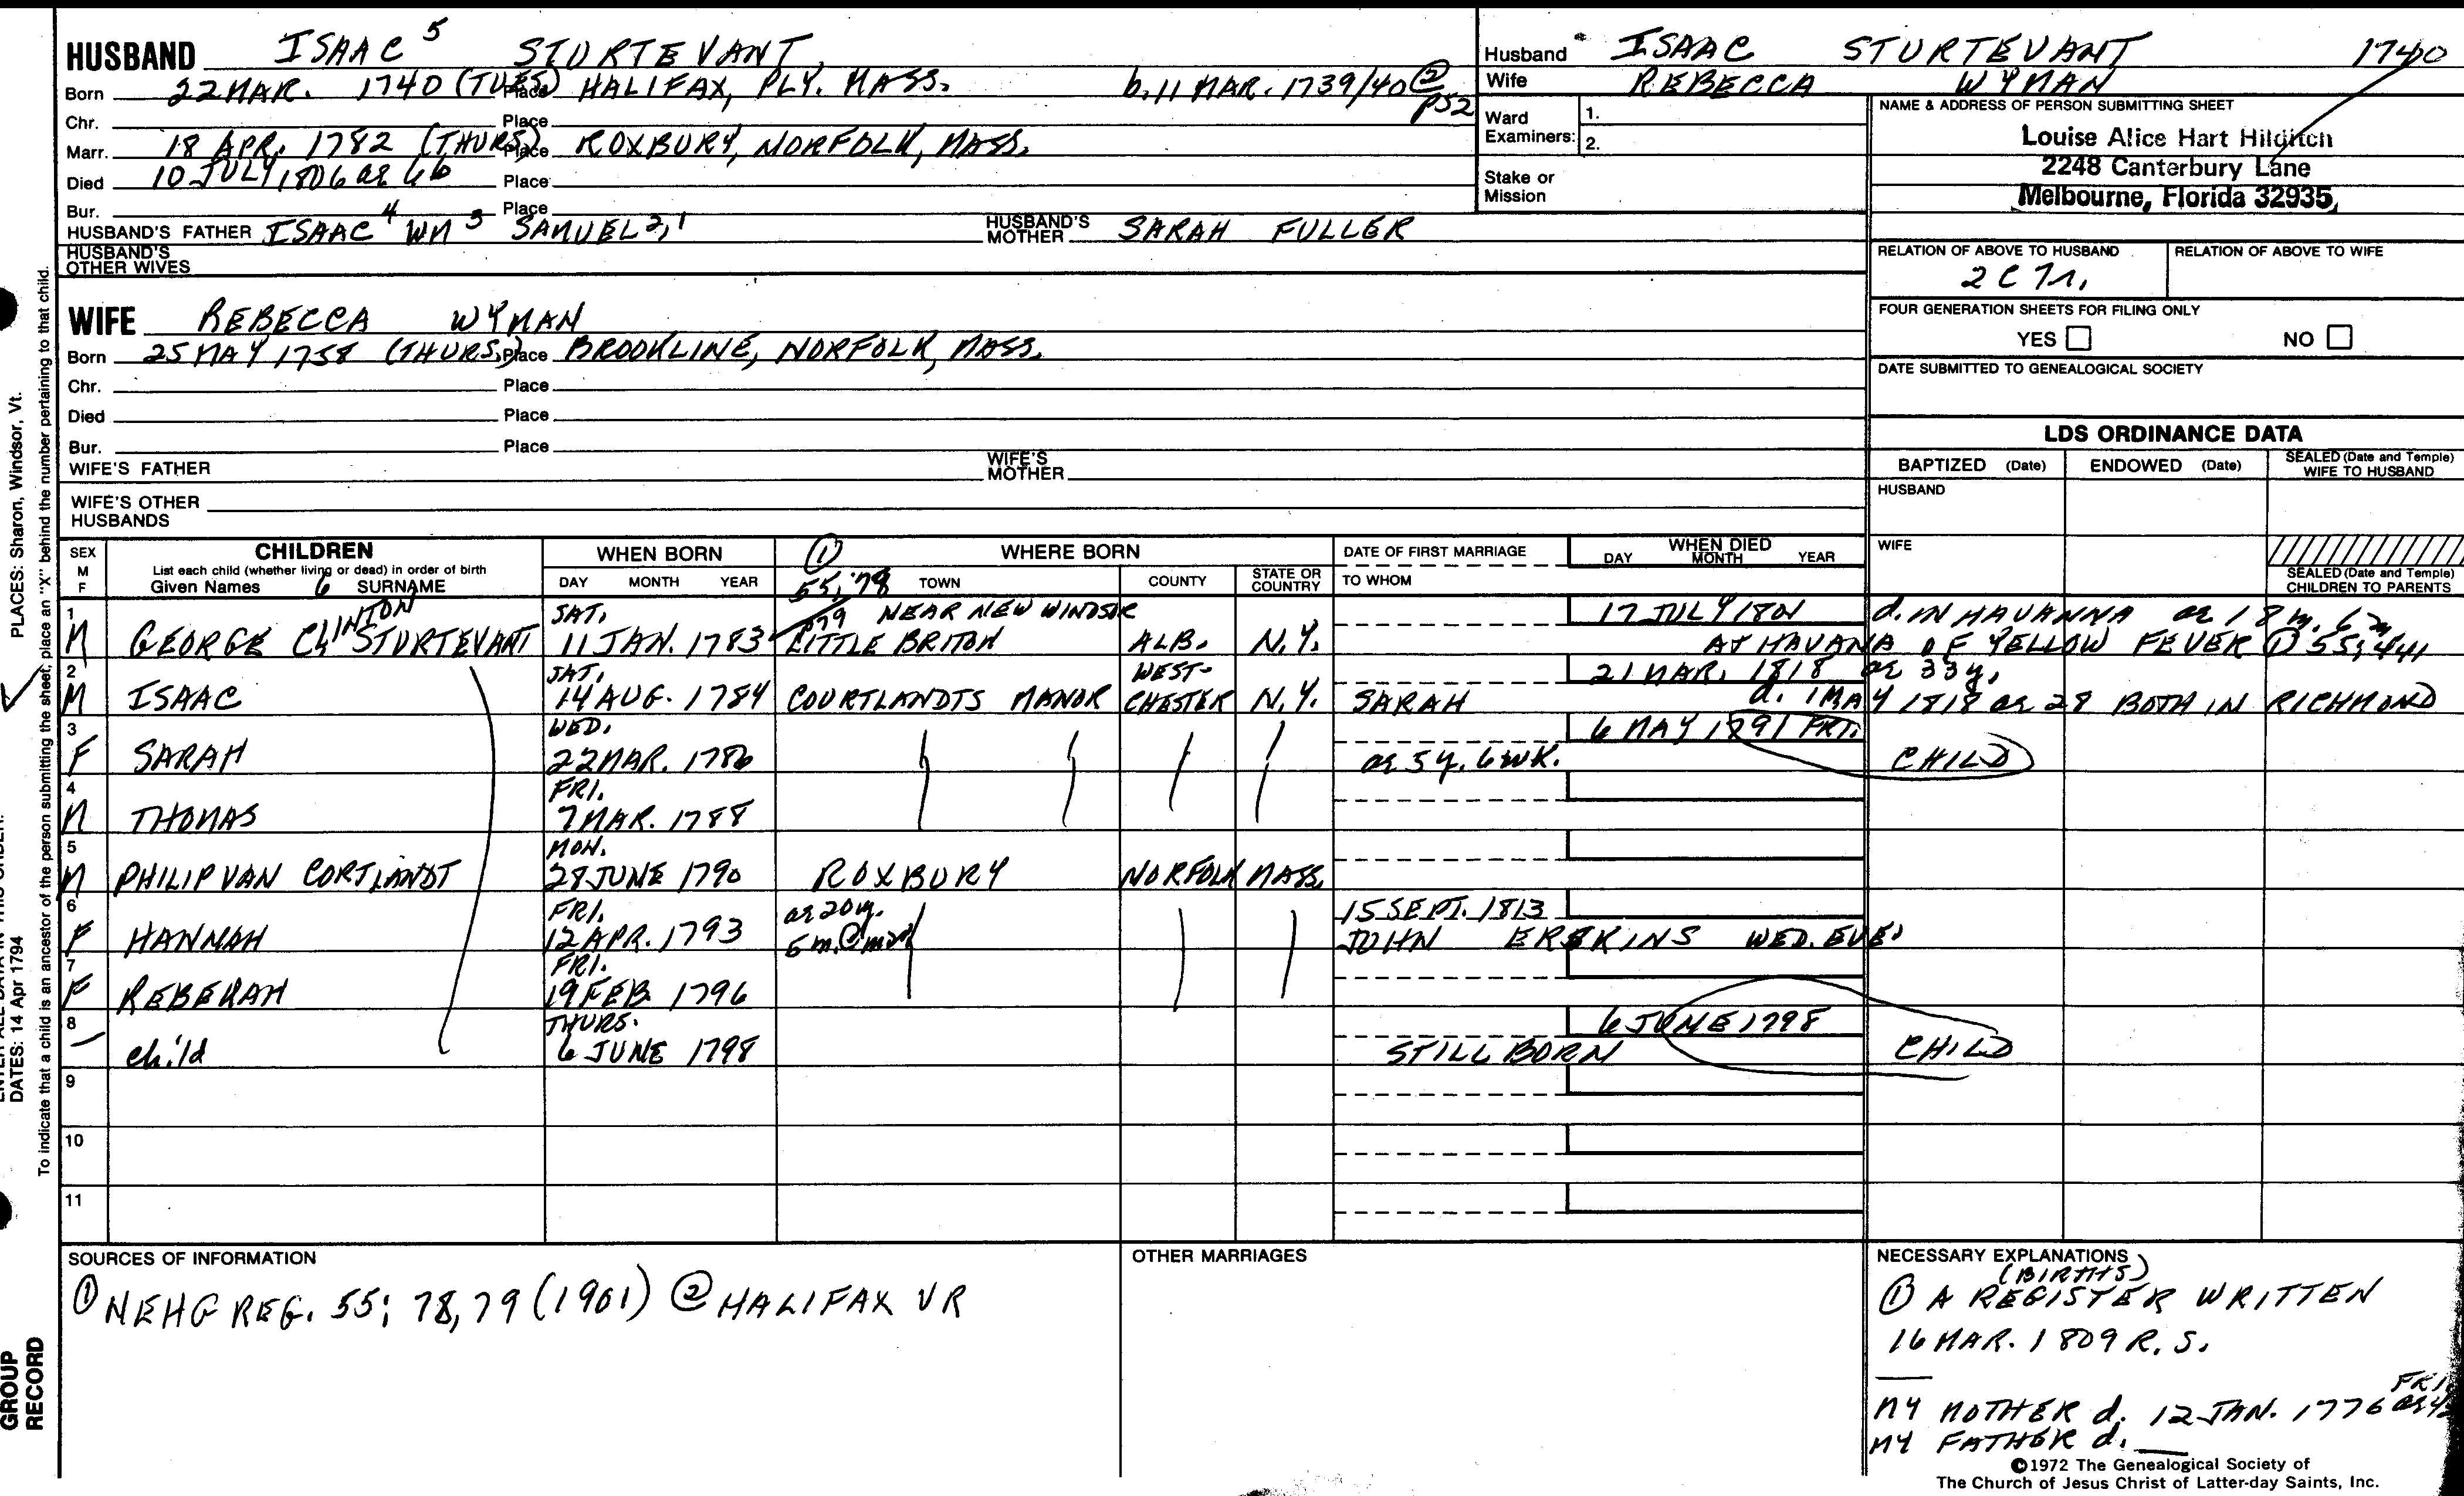 HUSBAND ISAAC 5 STURTEVANT
Born 22 MAR. 1740 (TUES) Place HALIFAX, PLY. MASS. b. 11 MAR. 1739/40 ② P52
Chr. Place
Marr. 18 APR. 1782 (THURS) Place ROXBURY, NORFOLK, MASS.
Died 10 JULY 1806 ae 66 Place
Bur. Place
HUSBAND'S FATHER ISAAC 4 WM 3 SAMUEL 2,1 HUSBAND'S MOTHER SARAH FULLER
HUSBAND'S OTHER WIVES
Husband ISAAC STURTEVANT 1740
Wife REBECCA WYMAN
Ward Examiners: 1.
2.
Stake or Mission
NAME & ADDRESS OF PERSON SUBMITTING SHEET
Louise Alice Hart Hilditch
2248 Canterbury Lane
Melbourne, Florida 32935
RELATION OF ABOVE TO HUSBAND RELATION OF ABOVE TO WIFE
FOUR GENERATION SHEETS FOR FILING ONLY
YES NO
DATE SUBMITTED TO GENEALOGICAL SOCIETY
WIFE REBECCA WYMAN
Born 25 MAY 1758 (THURS) Place BROOKLINE, NORFOLK, MASS.
Chr. Place
Died Place
Bur. Place
WIFE'S FATHER WIFE'S MOTHER
WIFE'S OTHER HUSBANDS
LDS ORDINANCE DATA
BAPTIZED (Date) ENDOWED (Date) SEALED (Date and Temple) WIFE TO HUSBAND
HUSBAND
WIFE
SEALED (Date and Temple) CHILDREN TO PARENTS
SEX M F
CHILDREN
List each child (whether living or dead) in order of birth
Given Names 6 SURNAME
WHEN BORN
DAY MONTH YEAR
① 55;78 p79
WHERE BORN
TOWN COUNTY STATE OR COUNTRY
DATE OF FIRST MARRIAGE
TO WHOM
WHEN DIED
DAY MONTH YEAR
1 M GEORGE CLINTON STURTEVANT SAT. 11 JAN. 1783 NEAR NEW WINDSOR LITTLE BRITON ALB. N.Y. 17 JULY 1801 d. IN HAVANNA ae 18
AT HAVANA OF YELLOW FEVER ① 55;441
2 M ISAAC SAT. 14 AUG. 1784 COURTLANDTS MANOR WEST-CHESTER N.Y. 21 MAR. 1818 ae 33 y.
SARAH d. 1 MAY 1818 ae 28 BOTH IN RICHMOND
3 F SARAH WED. 22 MAR. 1786 6 MAY 1791 FRI.
ae 5 y. 6 WK. CHILD
4 M THOMAS FRI. 7 MAR. 1788
5 M PHILIP VAN CORTLANDT MON. 28 JUNE 1790 ROXBURY NORFOLK MASS.
6 F HANNAH FRI. 12 APR. 1793 ae 20 y. 5 m. @ mar 15 SEPT. 1813
JOHN ERSKINS WED. EVE.
7 F REBEKAH FRI. 19 FEB. 1796
8 — child THURS. 6 JUNE 1798 6 JUNE 1798
STILL BORN CHILD
9
10
11
SOURCES OF INFORMATION
① NEHG REG. 55; 78,79 (1901) ② HALIFAX VR
OTHER MARRIAGES
NECESSARY EXPLANATIONS
(BIRTHS)
① A REGISTER WRITTEN
16 MAR. 1809 R.S.
MY MOTHER d. 12 JAN. 1776 FRI
MY FATHER d. __
©1972 The Genealogical Society of
The Church of Jesus Christ of Latter-day Saints, Inc.
PLACES: Sharon, Windsor, Vt.
DATES: 14 Apr 1794
To indicate that a child is an ancestor of the person submitting the sheet, place an "X" behind the number pertaining to that child.
GROUP
RECORD